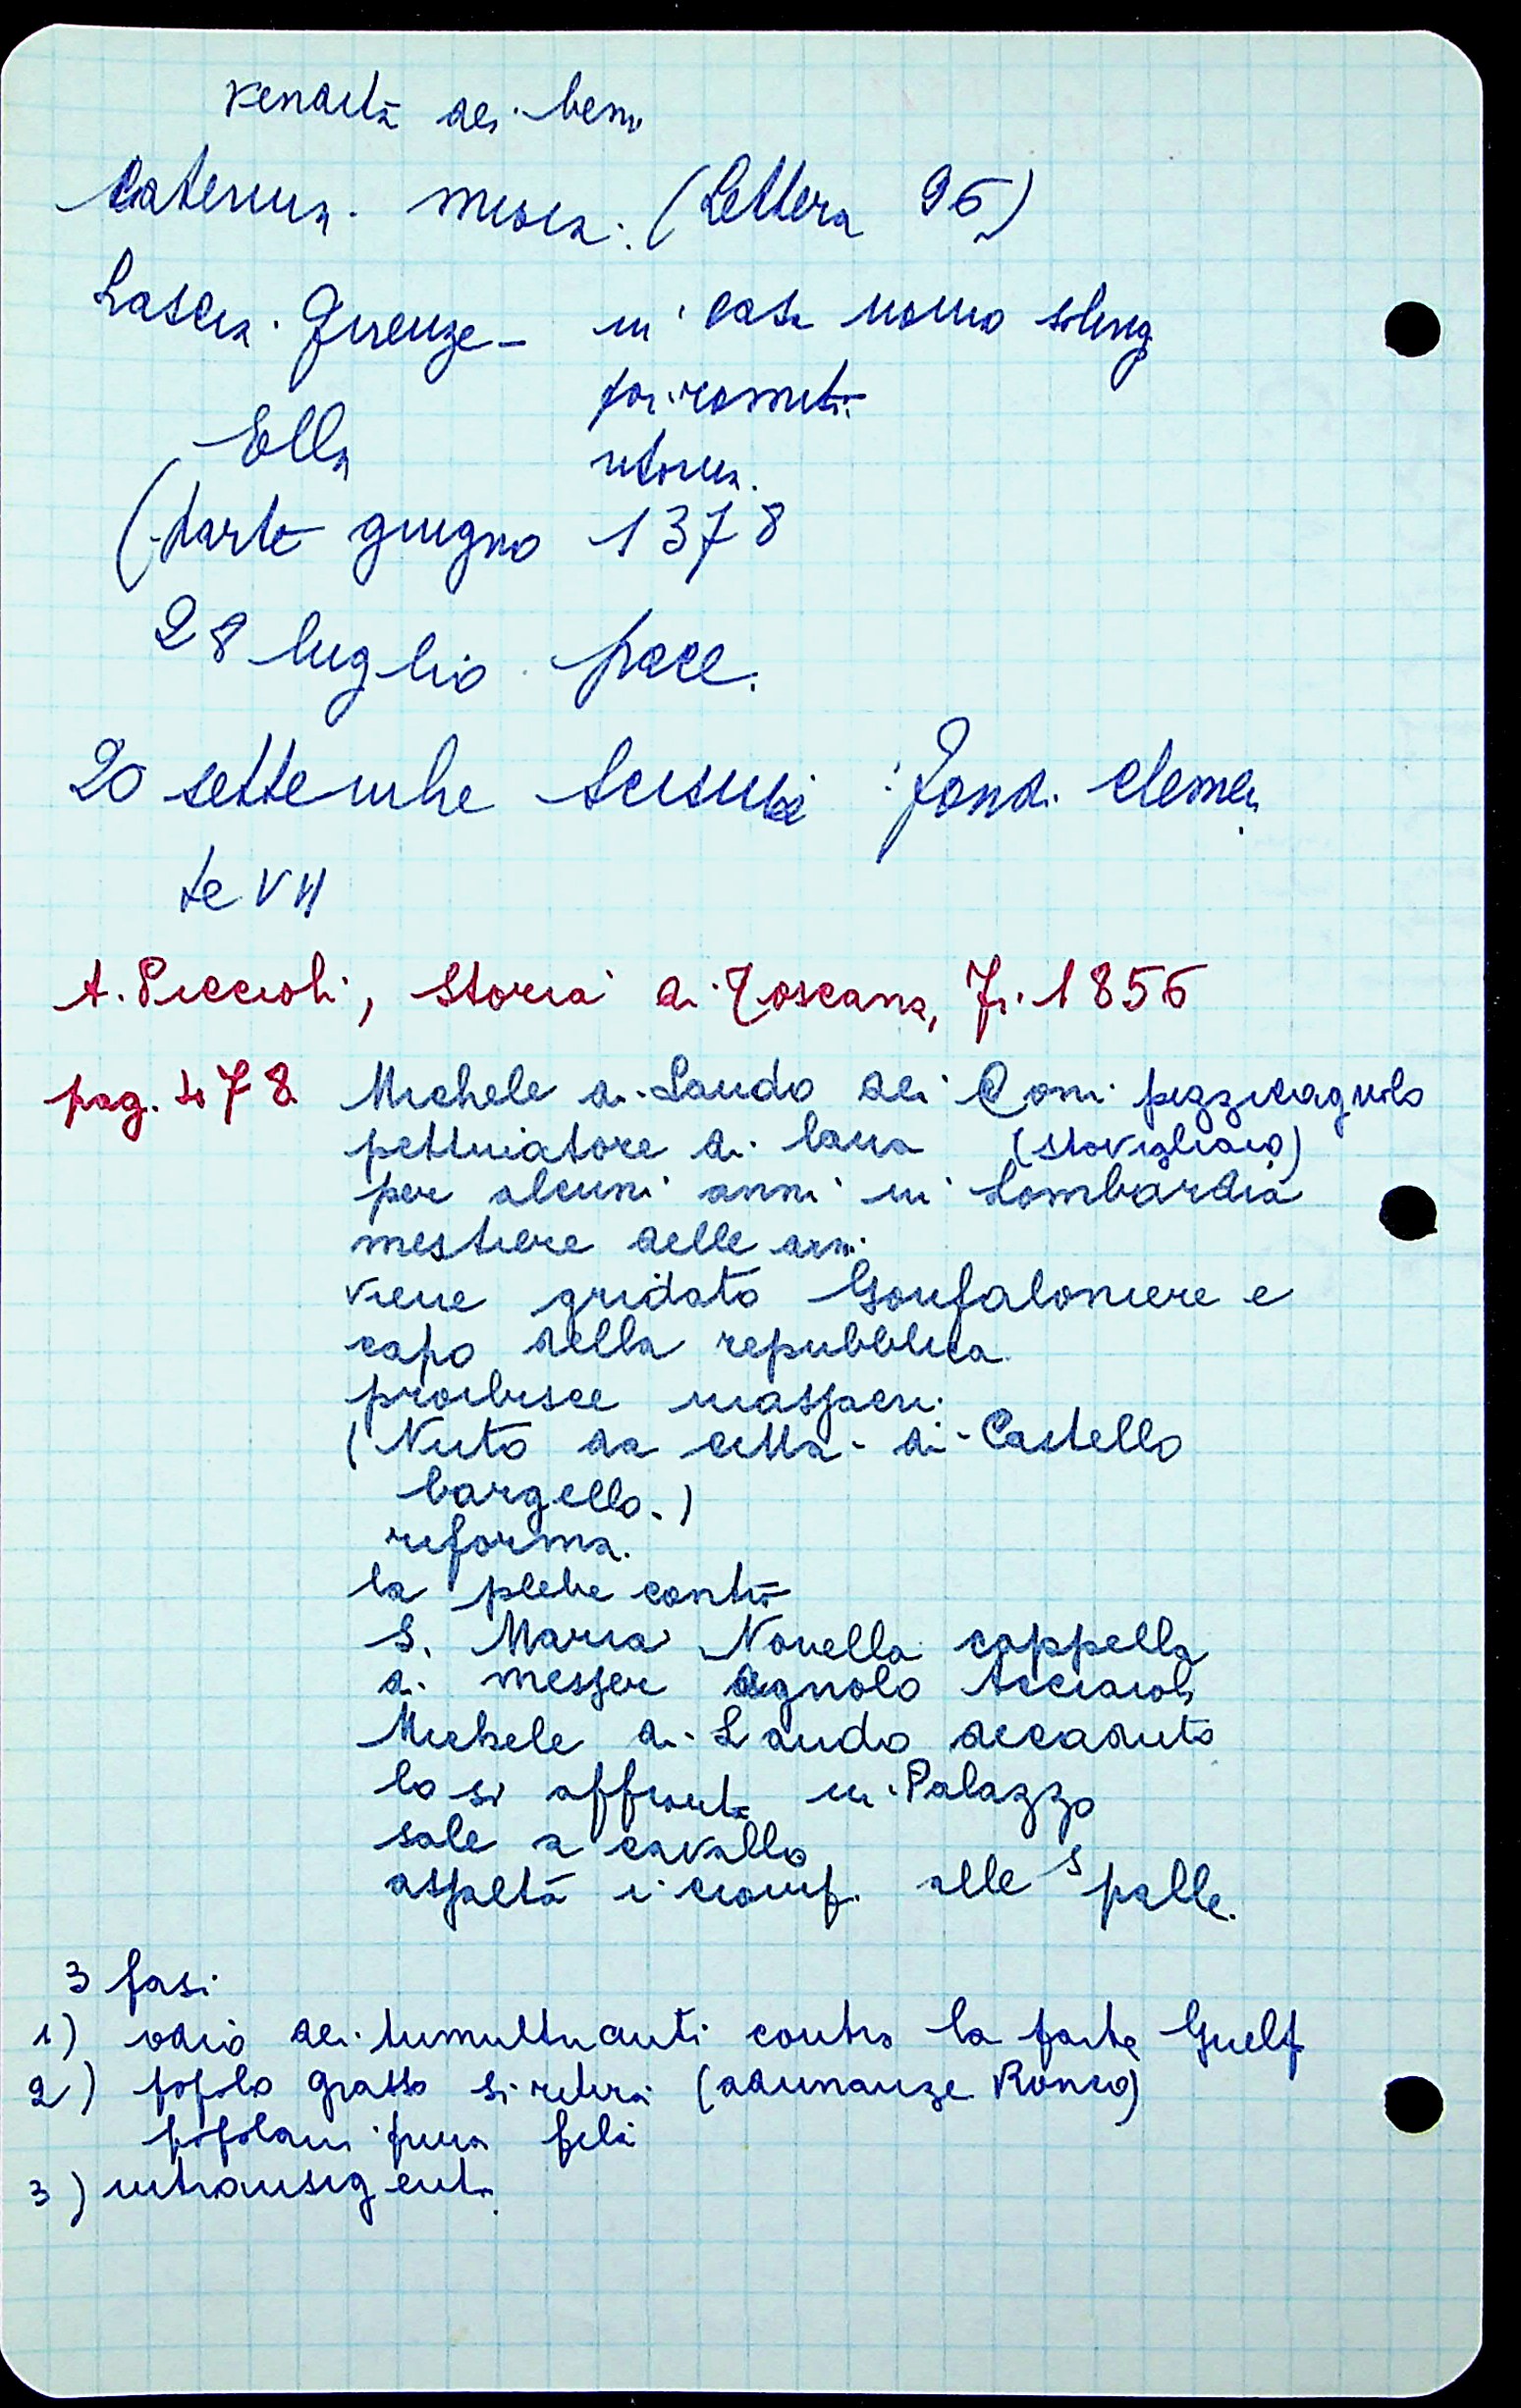 vendita dei beni
Caterina (Lettera 96)
Lascia Firenze - in casa uomo
poi romiti
Ella ritorna.
(parte giugno 1378
28 luglio pace.
20 settembre scisma : Fondi Clemen
te VII
A. Piccioli, Storia di Toscana, Fi. 1856
pag. 478 Michele di Lando dei Coni pizzicagnolo
pettinatore di lana (stovigliaio)
per alcuni anni in Lombardia
mestiere delle armi
viene gridato Gonfaloniere e
capo della repubblica
proibisce
(Nuto da città di Castello
bargello.)
riforma.
la plebe contro
S. Maria Novella cappella
di messer Agnolo Acciaioli
Michele di Lando decaduto
lo si affronta in Palazzo
sale a cavallo
aspetta i ciompi alle spalle.
3 fasi
1) odio dei tumultuanti contro la parte Guelf
2) popolo grasso si ritira (adunanze Ronco)
popolani
3) intransigenti